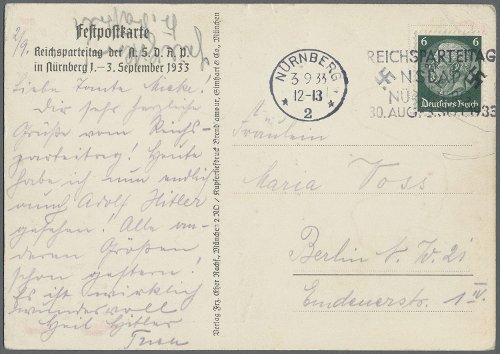 2/9.
Festpostkarte
Reichsparteitag der N. S. D. A. P.
in Nürnberg 1.–3. September 1933
Liebe Tante Mieke!
Dir sehr herzliche
Grüße vom Reichs-
parteitag! Heute
habe ich nun endlich
auch Adolf Hitler
gesehen! Alle an-
deren Größen
schon gestern!
Es ist wirklich
wundervoll
Heil Hitler
Verlag Frz. Ther Nachf., München 2 NO / Kupfertiefdruck Brend'amour, Simhart & Co., München
NÜRNBERG
3.9.33
12-13
* 2 *
REICHSPARTEITAG
NSDAP
30. AUG.
1933
6 6
Deutsches Reich
Fräulein
Maria Voss
Berlin N. W. 21
Emdenerstr. 1 IV.